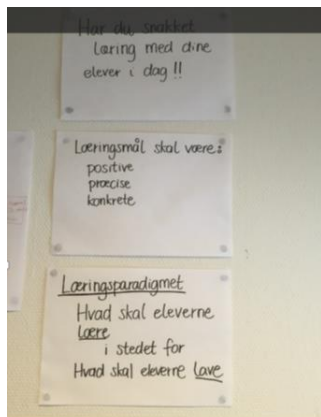 Har du snakket
læring med dine
elever i dag !!
Læringsmål skal være:
positive
præcise
konkrete
Læringsparadigmet
Hvad skal eleverne
lære
i stedet for
Hvad skal eleverne lave